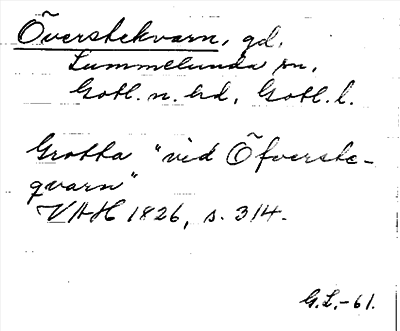 Överstekvarn, gd,
Lummelunda sn,
Gotl. n. hd, Gotl. l.
Grotta "vid Öfverste-
qvarn"
VAH 1826, s. 314.
G.L.-61.